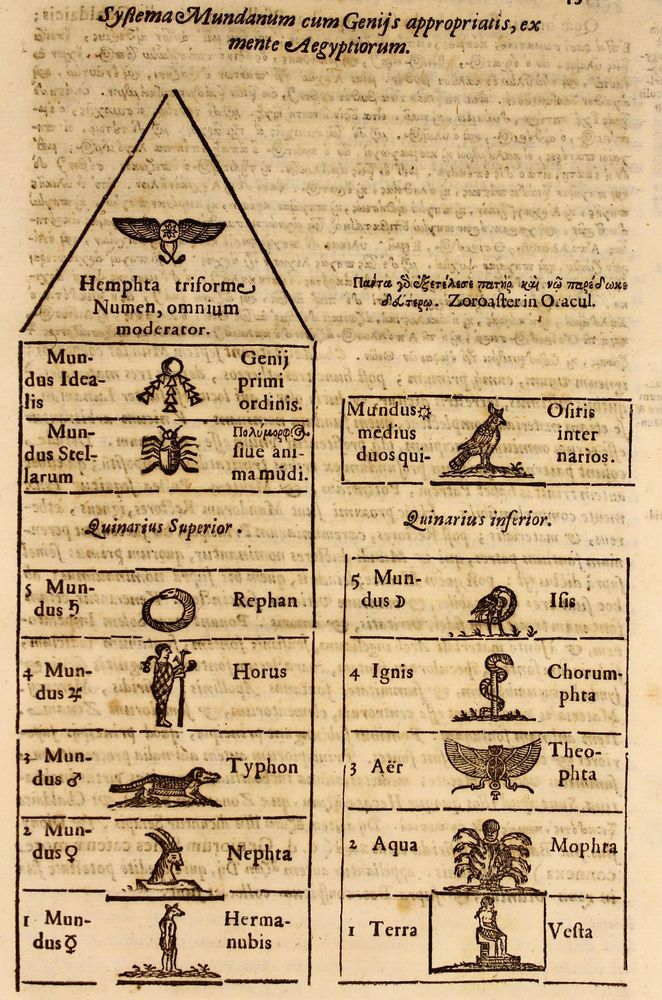 Systema Mundanum cum Genijs appropriatis, ex
mente Aegyptiorum.
Hemphta triforme
Numen, omnium
moderator.
Παύτα γδ ἐξετέλεσε πατὴρ καὶ νῷ παρέδωκε
δευτέρῳ. Zoroaster in Oracul.
Mun-
dus Idea-
lis
Genij
primi
ordinis.
Mun-
dus Stel-
larum
Πολύμορφος
siue ani-
ma mũdi.
Mundus☼
medius
duos qui-
Osiris
inter
narios.
Quinarius Superior.
5 Mun-
dus ♄
Rephan
4 Mun-
dus ♃
Horus
3 Mun-
dus ♂
Typhon
2 Mun-
dus ♀
Nephta
1 Mun-
dus ☿
Herma-
nubis
Quinarius inferior.
5 Mun-
dus ☽
Isis
4 Ignis
Chorum-
phta
3 Aër
Theo-
phta
2 Aqua
Mophta
1 Terra
Vesta